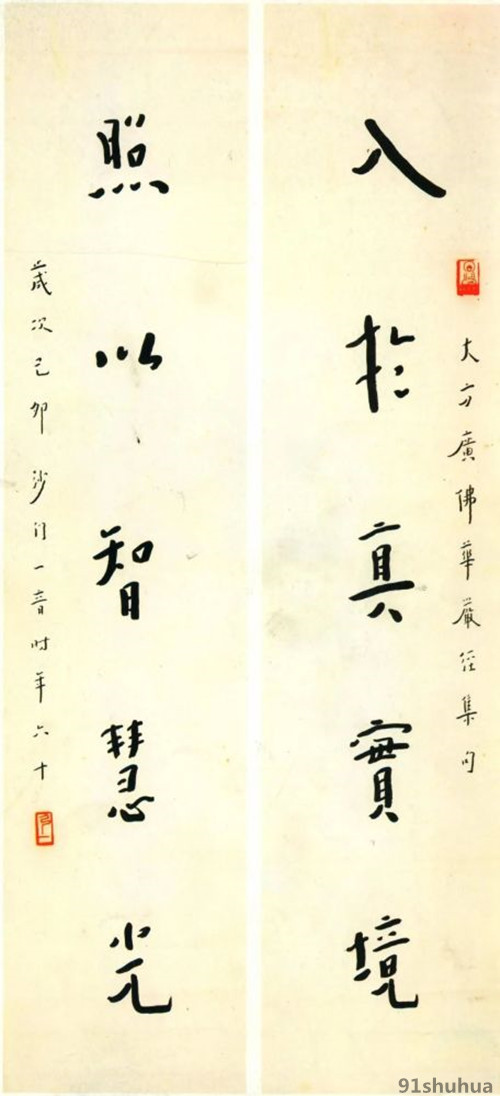 入於真實境
大方廣佛華嚴經集句
照以智慧光
歲次己卯沙門一音時年六十
91shuhua